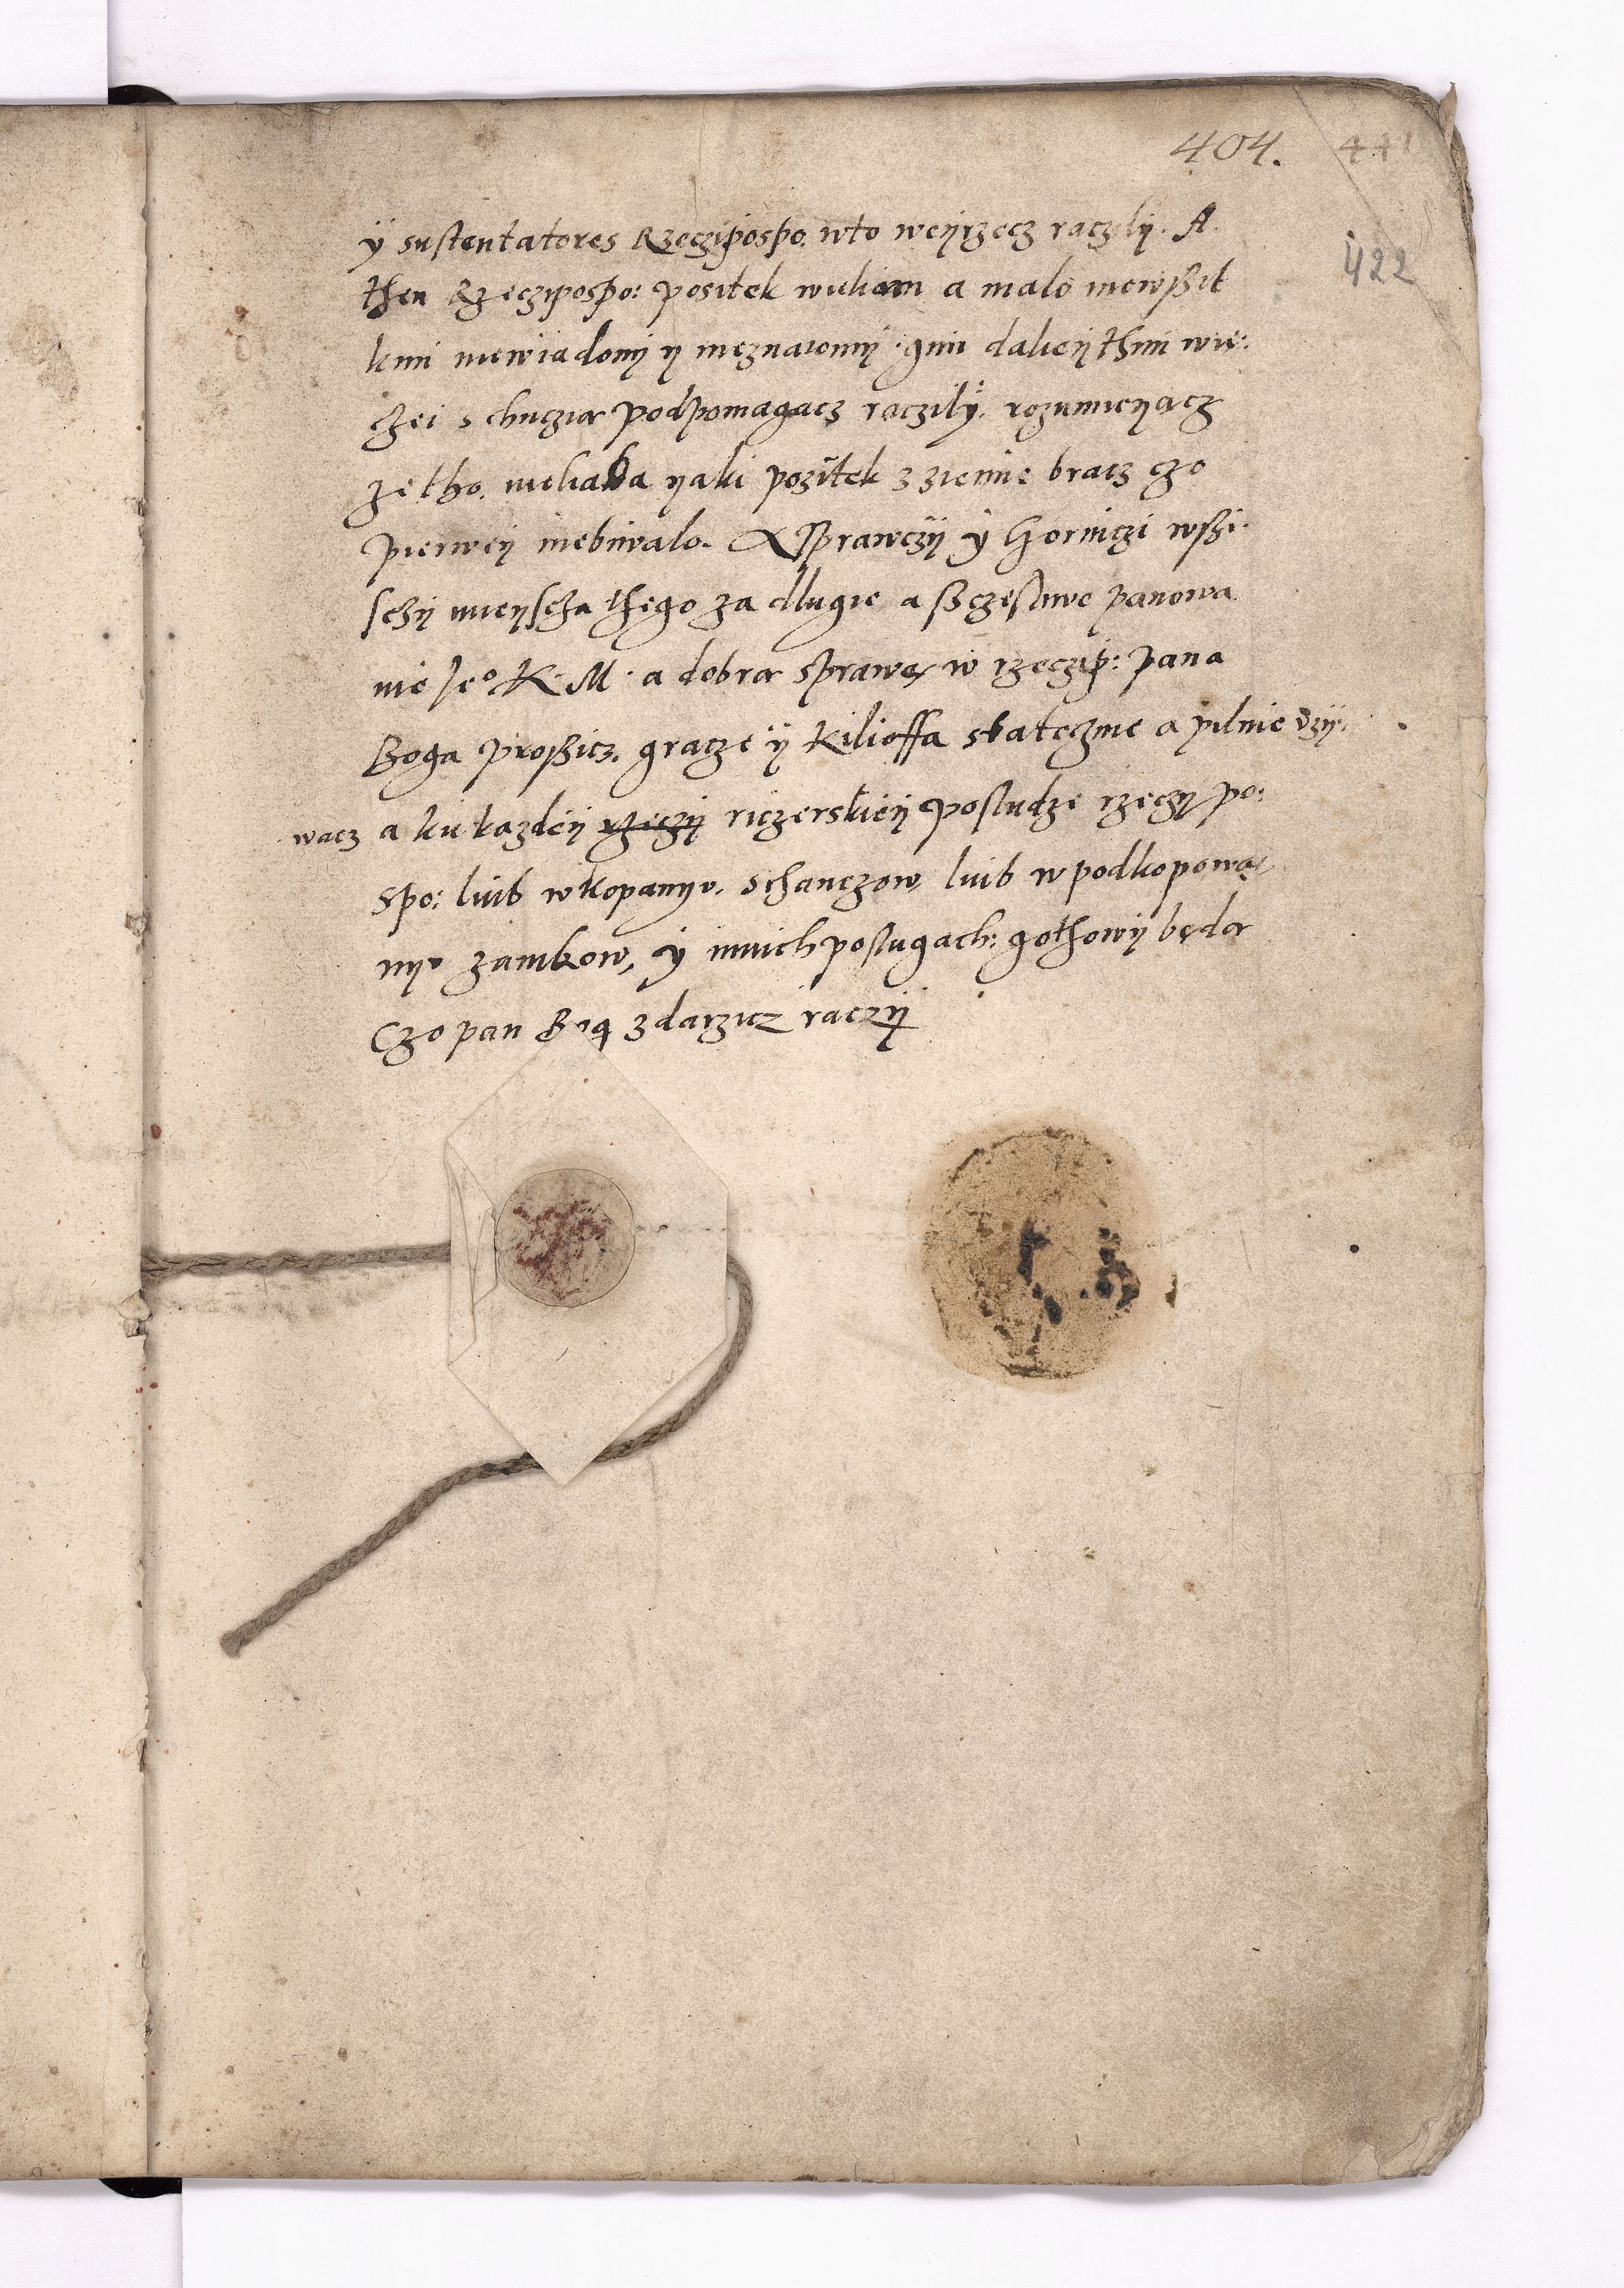 404. 441
422
ÿ sustentatores Rzeczipospo. wto weyrzecz raczÿlÿ. A.
then Rzeczipospo: positek wieliam a malo niewßit
kim niewiadomÿ y nieznaiomÿ gim daleÿ thim wie:
czei s chuczia podpomagacz raczilÿ. rozumieyacz
ze tho. yaki pozitek z ziemie bracz czo
pierweÿ niebiwalo. Sprawczÿ ÿ Gorniczi wßi.
sczÿ mieysca thego za dlugie a ßczęsliwe panowa
nie Jeo K. M. a dobra sprawę w rzeczip: pana
Boga proßicz. gracze ÿ kilioffa statecznie a pilnie vzÿ.
wacz a ku kazdeÿ rzeczÿ riczerskieÿ posludze rzeczy po:
spo: luib wkopanyu. schanczow, luib w podkopowa,
nyu zamkow, ÿ innich poslugach: gothowÿ będa
Czo pan Bog zdarzicz raczÿ